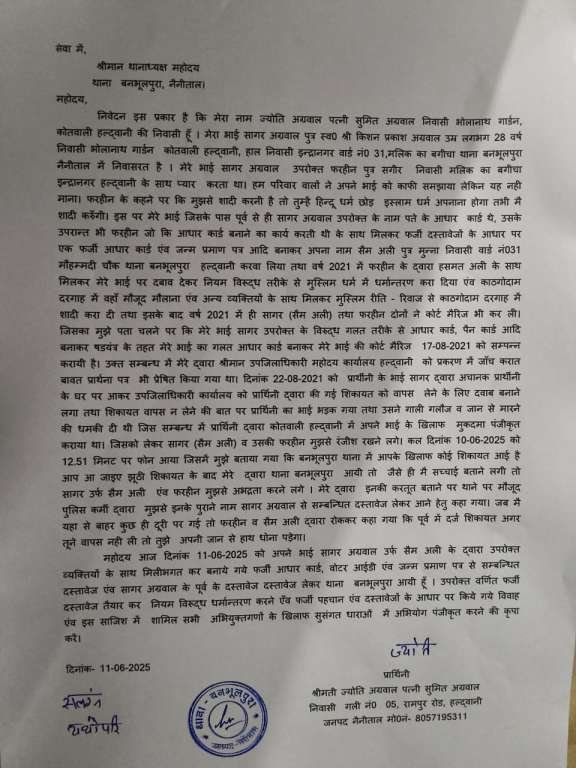 सेवा में,
श्रीमान थानाध्यक्ष महोदय
थाना बनभूलपुरा, नैनीताल।
महोदय,
निवेदन इस प्रकार है कि मेरा नाम ज्योति अग्रवाल पत्नी सुमित अग्रवाल निवासी भोलानाथ गार्डन,
कोतवाली हल्द्वानी की निवासी हूँ । मेरा भाई सागर अग्रवाल पुत्र स्व0 श्री किशन प्रकाश अग्रवाल उम्र लगभग 28 वर्ष
निवासी भोलानाथ गार्डन कोतवाली हल्द्वानी, हाल निवासी इन्द्रानगर वार्ड नं0 31,मलिक का बगीचा थाना बनभूलपुरा
नैनीताल में निवासरत है । मेरे भाई सागर अग्रवाल उपरोक्त फरहीन पुत्र सगीर निवासी मलिक का बगीचा
इन्द्रानगर हल्द्वानी के साथ प्यार करता था। हम परिवार वालों ने अपने भाई को काफी समझाया लेकिन यह नही
माना। फरहीन के कहने पर कि मुझसे शादी करनी है तो तुम्हे हिन्दू धर्म छोड़ इस्लाम धर्म अपनाना होगा तभी मैं
शादी करुँगी। इस पर मेरे भाई जिसके पास पूर्व से ही सागर अग्रवाल उपरोक्त के नाम पते के आधार कार्ड थे, उसके
उपरान्त भी फरहीन जो कि आधार कार्ड बनाने का कार्य करती थी के साथ मिलकर फर्जी दस्तावेजों के आधार पर
एक फर्जी आधार कार्ड एंव जन्म प्रमाण पत्र आदि बनाकर अपना नाम सैम अली पुत्र मुन्ना निवासी वार्ड नं031
मौहम्मदी चौक थाना बनभूलपुरा हल्द्वानी करवा लिया तथा वर्ष 2021 में फरहीन के द्वारा हसमत अली के साथ
मिलकर मेरे भाई पर दबाव देकर नियम विरुद्ध तरीके से मुस्लिम धर्म में धर्मान्तरण करा दिया एंव काठगोदाम
दरगाह में वहाँ मौजूद मौलाना एंव अन्य व्यक्तियों के साथ मिलकर मुस्लिम रीति - रिवाज से काठगोदाम दरगाह में
शादी करा दी तथा इसके बाद वर्ष 2021 में ही सागर (सैम अली) तथा फरहीन दोनों ने कोर्ट मैरिज भी कर ली।
जिसका मुझे पता चलने पर कि मेरे भाई सागर उपरोक्त के विरुद्ध गलत तरीके से आधार कार्ड, पैन कार्ड आदि
बनाकर षडयंत्र के तहत मेरे भाई का गलत आधार कार्ड बनाकर मेरे भाई की कोर्ट मैरिज 17-08-2021 को सम्पन्न
करायी है। उक्त सम्बन्ध में मेरे द्वारा श्रीमान उपजिलाधिकारी महोदय कार्यालय हल्द्वानी को प्रकरण में जाँच करात
बावत प्रार्थना पत्र भी प्रेषित किया गया था। दिनांक 22-08-2021 को प्रार्थीनी के भाई सागर द्वारा अचानक प्रार्थीनी
के घर पर आकर उपजिलाधिकारी कार्यालय को प्रार्थिनी द्वारा की गई शिकायत को वापस लेने के लिए दवाब बनाने
लगा तथा शिकायत वापस न लेने की बात पर प्रार्थिनी का भाई भडक गया तथा उसने गाली गलौज व जान से मारने
की धमकी दी थी जिस सम्बन्ध में प्रार्थिनी द्वारा कोतवाली हल्द्वानी में अपने भाई के खिलाफ मुकदमा पंजीकृत
कराया था। जिसको लेकर सागर (सैम अली) व उसकी फरहीन मुझसे रंजीश रखने लगे। कल दिनांक 10-06-2025 को
12.51 मिनट पर फोन आया जिसमें मुझे बताया गया कि बनभूलपुरा थाना में आपके खिलाफ कोई शिकायत आई है
आप आ जाइए झूठी शिकायत के बाद मेरे द्वारा थाना बनभूलपुरा आयी तो जैसे ही में सच्चाई बताने लगी तो
सागर उर्फ सैम अली एंव फरहीन मुझसे अभद्रता करने लगे । मेरे द्वारा इनकी करतूत बताने पर थाने पर मौजूद
पुलिस कर्मी द्वारा मुझसे इनके पुराने नाम सागर अग्रवाल से सम्बन्धित दस्तावेज लेकर आने हेतु कहा गया। जब में
यहा से बाहर कुछ ही दूरी पर गई तो फरहीन व सैम अली द्वारा रोककर कहा गया कि पूर्व में दर्ज शिकायत अगर
तूने वापस नही ली तो तुझे अपनी जान से हाथ धोना पड़ेगा।
महोदय आज दिनांक 11-06-2025 को अपने भाई सागर अग्रवाल उर्फ सैम अली के द्वारा उपरोक्त
व्यक्तियों के साथ मिलीभगत कर बनाये गये फर्जी आधार कार्ड, वोटर आईडी एंव जन्म प्रमाण पत्र से सम्बन्धित
दस्तावेज एंव सागर अग्रवाल के पूर्व के दस्तावेज दस्तावेज लेकर थाना बनभूलपुरा आयी हूँ । उपरोक्त वर्णित फर्जी
दस्तावेज तैयार कर नियम विरुद्ध धर्मान्तरण करने एँव फर्जी पहचान एंव दस्तावेजों के आधार पर किये गये विवाह
एंव इस साजिश में शामिल सभी अभियुक्तगणों के खिलाफ सुसंगत धाराओं में अभियोग पंजीकृत करने की कृपा
करें।
ज्योति
दिनांक- 11-06-2025
प्रार्थिनी
श्रीमती ज्योति अग्रवाल पत्नी सुमित अग्रवाल
निवासी गली नं0 05, रामपुर रोड, हल्द्वानी
जनपद नैनीताल मो0नं- 8057195311
संलग्न
यथोपरि
थाना - बनभूलपुरा
जनपद-नैनीताल